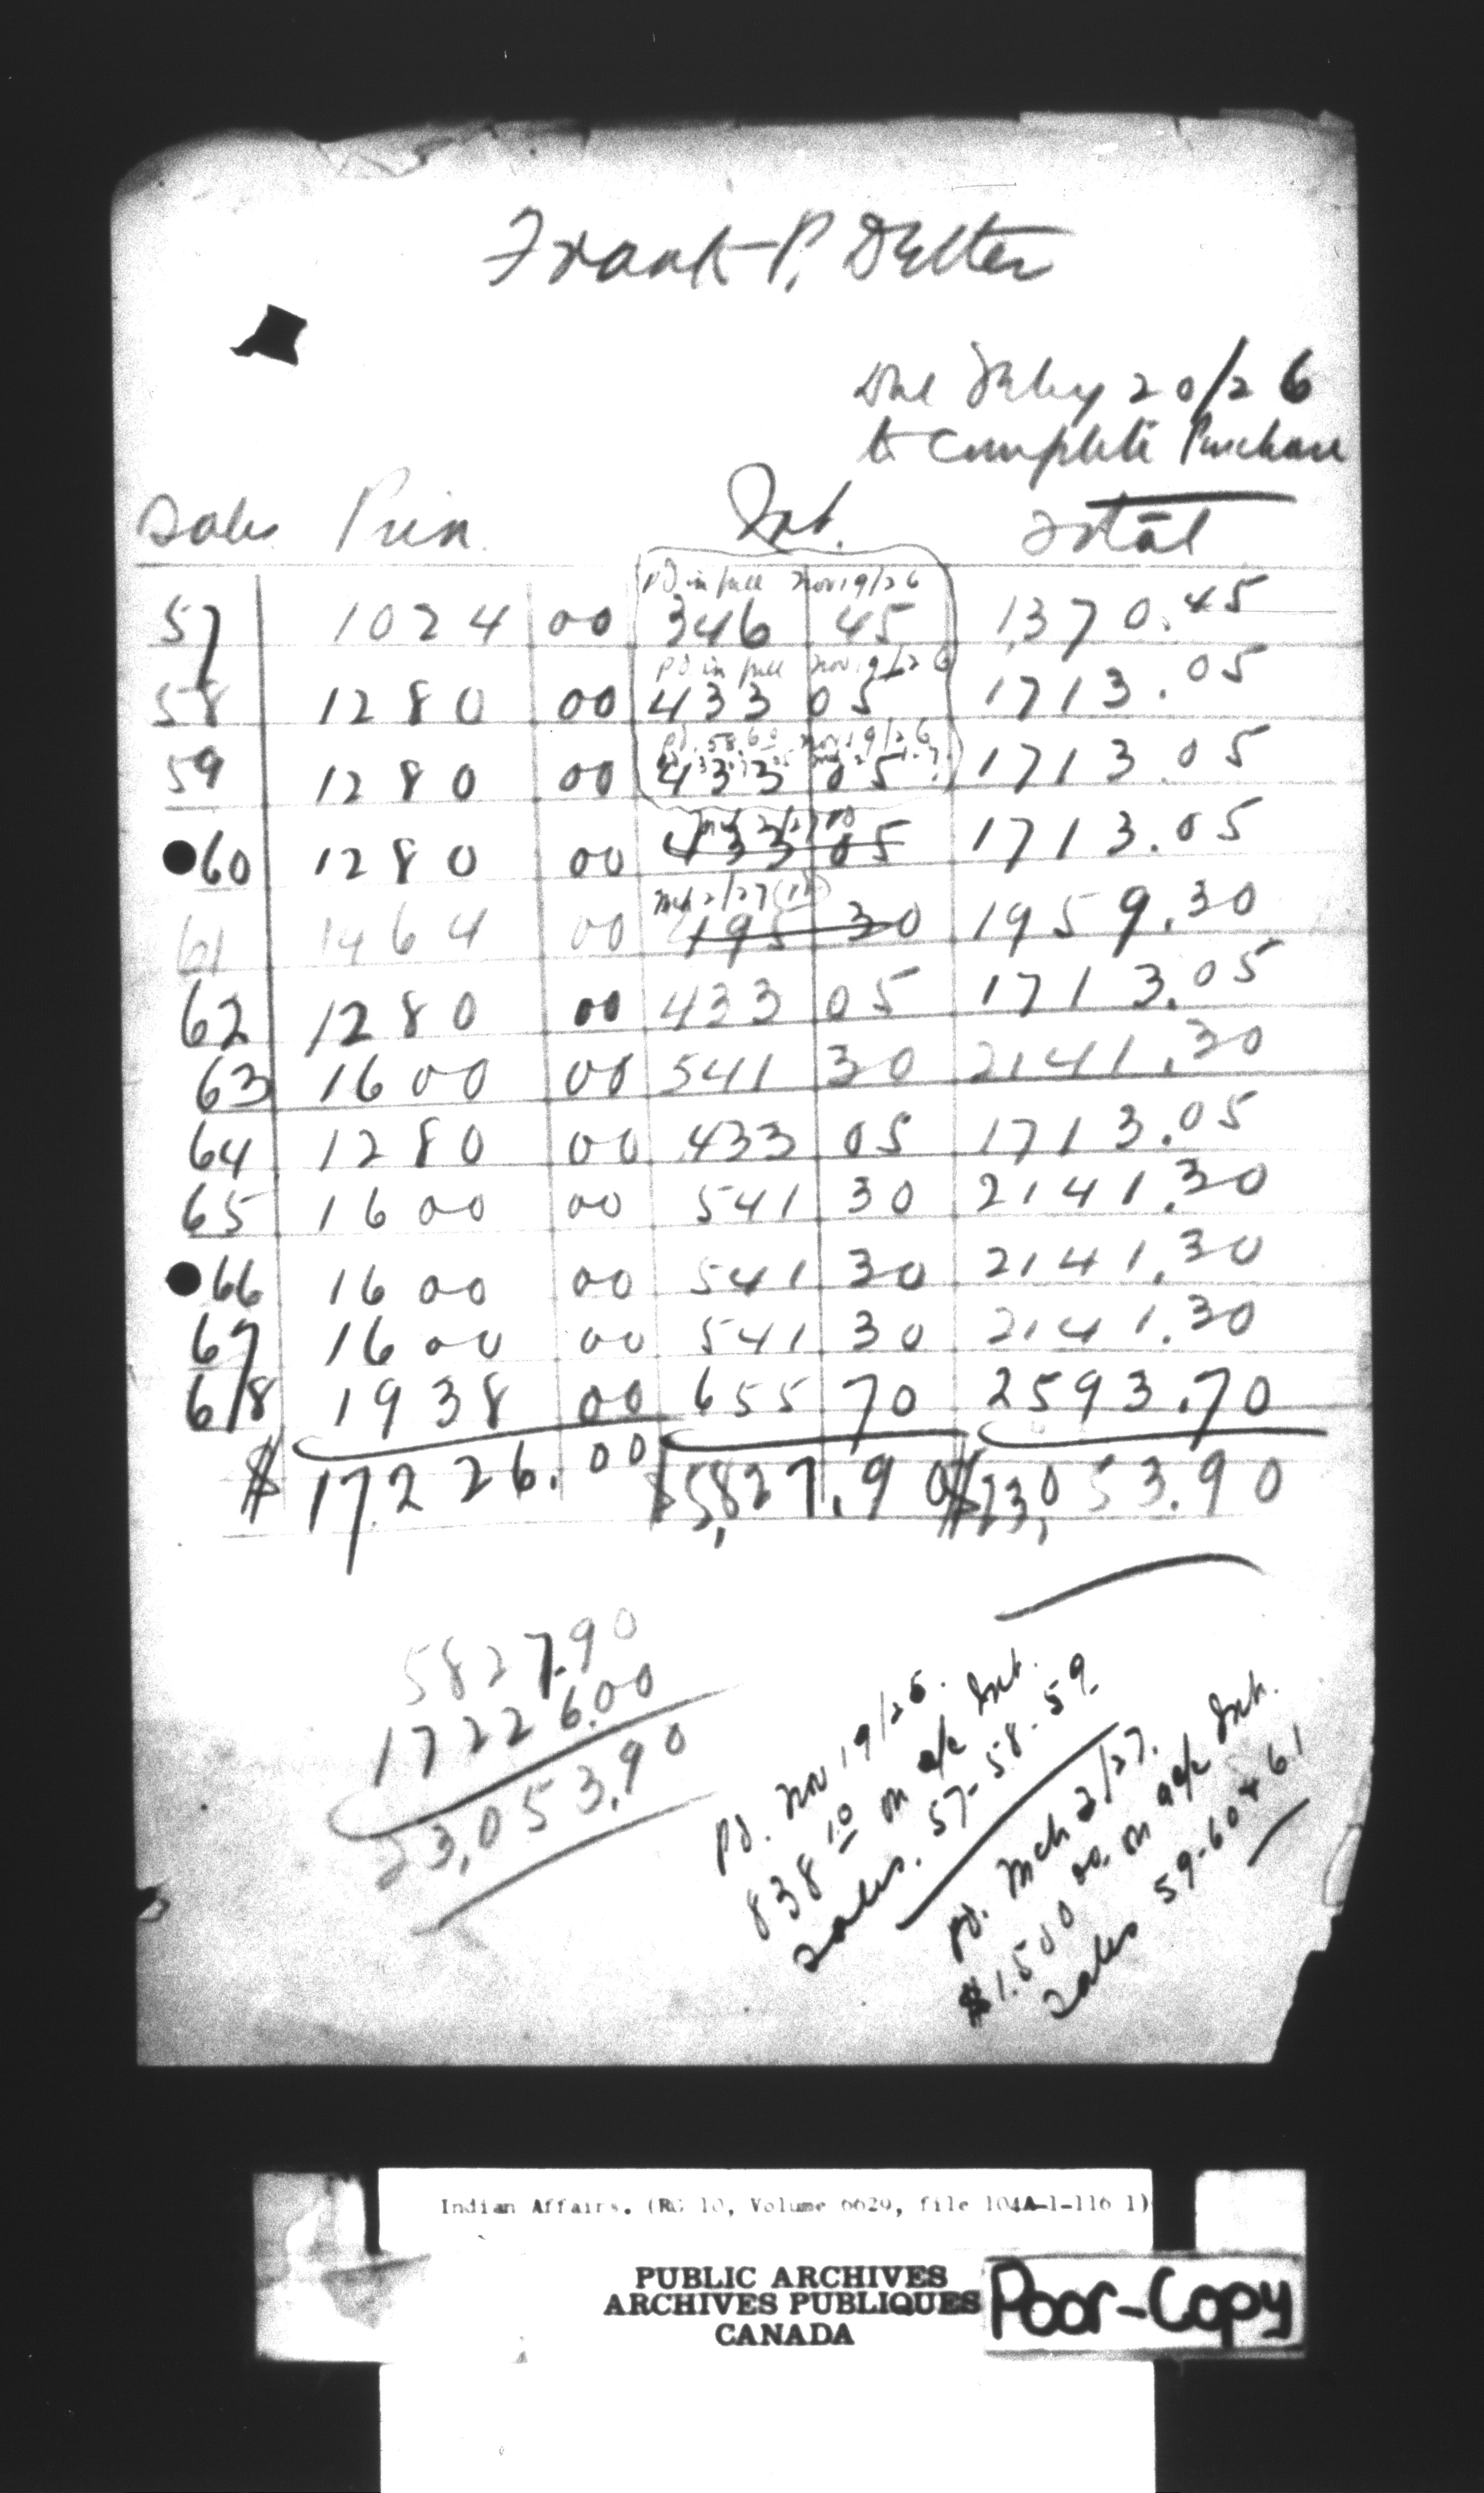 Frank P. Delter
Due Feby 20/26
to complete Purchase
Sales Prin. Int. Total
pd in full Nov 19/26
57 1024 00 346 45 1,370.45
pd in full Nov 19/26
58 1280 00 433 05 1713.05
pd. 58.60 Nov 19/26
59 1280 00 433 05 1713.05
Mch 2/27 pd
60 1280 00 433 05 1713.05
Mch 2/27
61 1464 00 495 30 1959.30
62 1280 00 433 05 1713.05
63 1600 00 541 30 2141.30
64 1280 00 433 05 1713.05
65 1600 00 541 30 2141.30
66 1600 00 541 30 2141.30
67 1600 00 541 30 2141.30
68 1938 00 655 70 2593.70
$ 17226.00 $5,827.90 $23,053.90
5827.90
17226.00
23,053.90
Pd. Nov 19/26.
838 10 on a/c Int.
Sales. 57-58-59
Pd. Mch 2/27.
$1.500 00 on a/c Int.
Sales 59-60 + 61
Indian Affairs. (RG 10, Volume 6620, file 104A-1-116 1)
PUBLIC ARCHIVES
ARCHIVES PUBLIQUES
CANADA
Poor-Copy